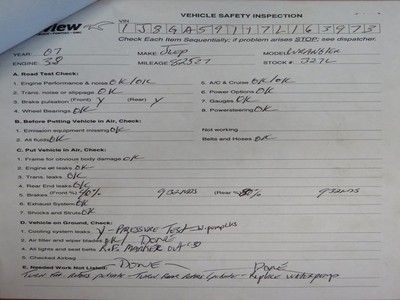 view
VEHICLE SAFETY INSPECTION
VIN 1J8GA59197L163973
Check Each Item Sequentially; if problem arises STOP: see dispatcher.
YEAR 07 MAKE: JEEP MODEL WRANGLER
ENGINE: 38 MILEAGE 82527 STOCK #: 327C
A. Road Test Check:
1. Engine Performance & noise OK/OK 5. A/C & Cruise OK/OK
2. Trans. noise or slippage OK 6. Power Options OK
3. Brake pulsation (Front) Y (Rear) Y 7. Gauges OK
4. Wheel Bearings OK 8. Powersteering OK
B. Before Putting Vehicle in Air, Check:
1. Emission equipment missing OK Not working
2. All fluids OK Belts and Hoses OK
C. Put Vehicle in Air, Check:
1. Frame for obvious body damage OK
2. Engine oil leaks OK
3. Trans. leaks OK
4. Rear End leaks OK
5. Brakes (Front %) 90% 9/32NDS (Rear %) 80% 9/32NDS
6. Exhaust System OK
7. Shocks and Struts OK
D. Vehicle on Ground, Check:
1. Cooling system leaks Y - PRESSURE TEST -
2. Air filter and wiper blades OK/ DONE
4. All lights and seat belts MARKER OUT
5. Checked Airbag
E. Needed Work Not Listed: DONE DONE
TURN REAR - Replace Waterpump